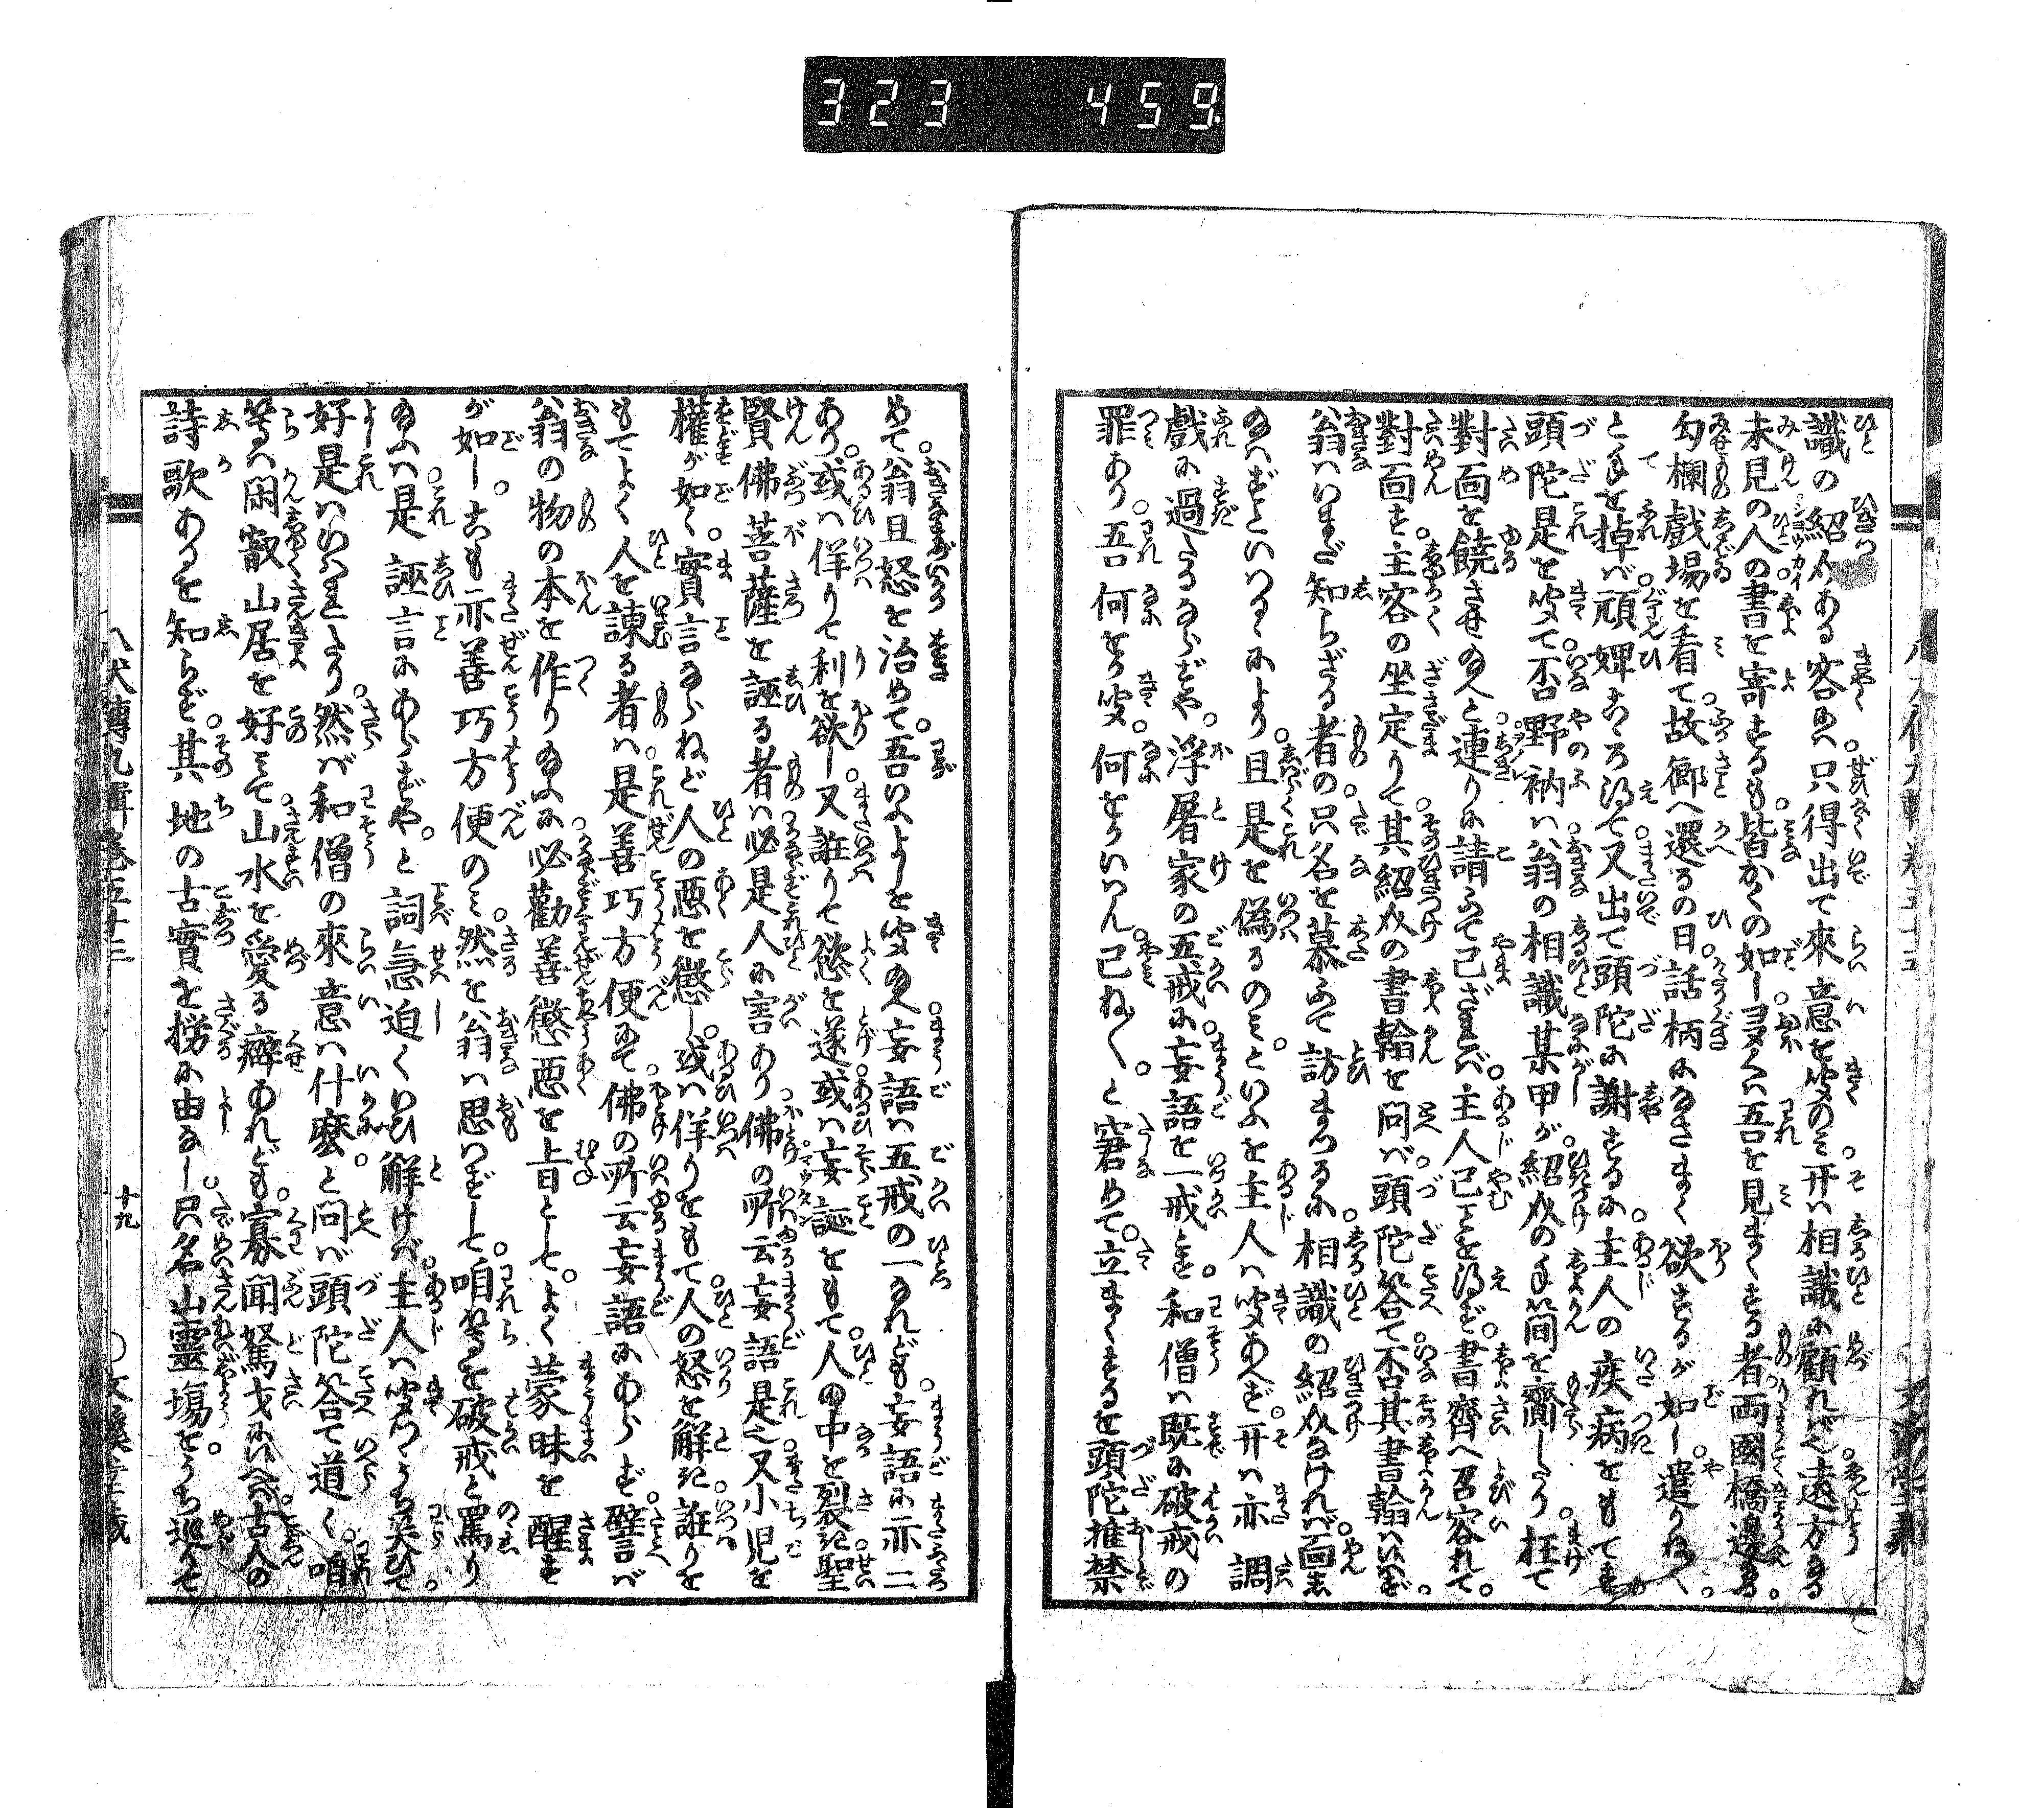 323 459
識の紹介ある客あれば只得出て來意を咲くのミ开は相識に顧れば也遠方なる
未見の人の書を寄するも皆かくの如し。多くは吾を見まくする者両國橋邊なる
勾欄戲場を看て故郷へ還るの日話柄になさまく欲するが如し。遣りね〳〵。
と手を掉ば頑婢こゝろ得て又出て頭陀に謝するに主人の疾病をもてす
頭陀是を咲て否野衲は翁の相識某甲が紹介の手簡を齎したり枉て
對面を饒させ給へと連りに請ふて已ざれば主人已ことを得ず書齋へ召容れて。
對面す主客の坐定りて其紹介の書翰を問ば頭陀答て否其書翰はいはず
翁はいまだ知らざる者の只名を慕ふて訪まつるに相識の紹介なければ面し
給はずといはるゝにより且是を偽るのミ。といふを主人は咲あへず。开は亦調
戲に過たるならずや。浮屠家の五戒に妄語を一戒とす。和僧は既に破戒の
罪あり。吾何をか咲。何をかいはん已ね〳〵。と窘めて。立まくするを頭陀推禁
めて翁且怒を治めて。吾いふよしを咲給へ妄語は五戒の一なれども妄語に亦二
あり。或は佯りて利を欲し。又誑りて慾を遂或は妄誕をもて人の中を裂き聖
賢佛菩薩を誣る者は必是人に害あり佛の所云妄語是也又小児を
權すが如く實言ならねど人の惡を懲し。或は佯りをもて人の怒を解き誑りを
もてよく人を諫る者は是善巧方便にて佛の所云妄語にあらず。譬言ば
翁の物の本を作り給ふに必勸善懲惡を旨とし。よく蒙昧を醒す
が如し。こも亦善巧方便のミ然を翁は思はずして。咱等を破戒と罵り
給ふは是誣言にあらずや。と詞急迫しくいひ解けば主人は咲つゝうち笑ひて
好是はいはれたり然ば和僧の來意は什麽と問ば頭陀答て道く咱
等は閑寂山居を好ミて山水を愛る癖あれども寡聞駑才にいへば古人の
詩歌あるを知らず其地の古實を撈に由なし。只名山靈塲をうち巡りて
八犬傳九輯卷五十三
十九